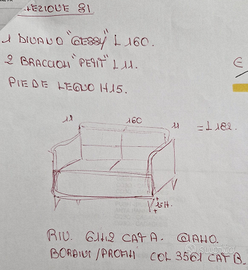 LEZIONE 81
1 DIVANO "GESSY" L160.
2 BRACCIOLI "PETIT" L11.
PIEDE LEGNO H15.
€
11 160 11 = L182
15H.
RIV. 6112 CAT A.
BORDINI/PROFILI COL 3561 CAT B.